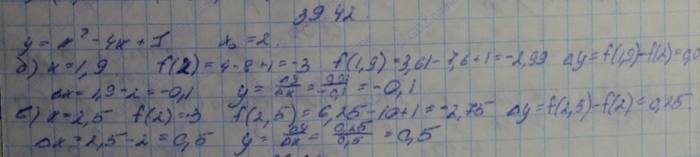 39.42.
y = x² - 4x + 1    x₀ = 2.
б) x = 1,9    f(2) = 4 - 8 + 1 = -3    f(1,9) = 3,61 - 7,6 + 1 = -2,99    Δy = f(1,9) - f(2) = 0,0
Δx = 1,9 - 2 = -0,1    y = Δy/Δx = 0,01/-0,1 = -0,1
x = 2,5    f(2) = -3    f(2,5) = 6,25 - 10 + 1 = -2,75    Δy = f(2,5) - f(2) = 0,25
Δx = 2,5 - 2 = 0,5    y = Δy/Δx = 0,25/0,5 = 0,5